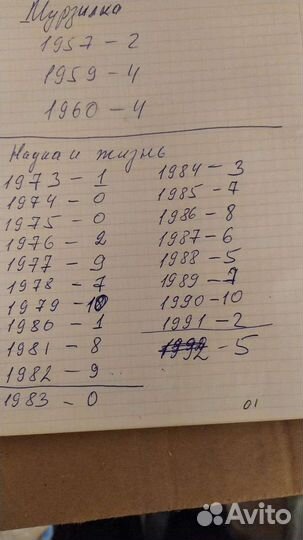 Мурзилка
1957 - 2
1959 - 4
1960 - 4
Наука и жизнь
1973 - 1
1974 - 0
1975 - 0
1976 - 2
1977 - 9
1978 - 7
1979 - 10
1980 - 1
1981 - 8
1982 - 9
1983 - 0
1984 - 3
1985 - 7
1986 - 8
1987 - 6
1988 - 5
1989 - 7
1990 - 10
1991 - 2
1992 - 5
01
Avito